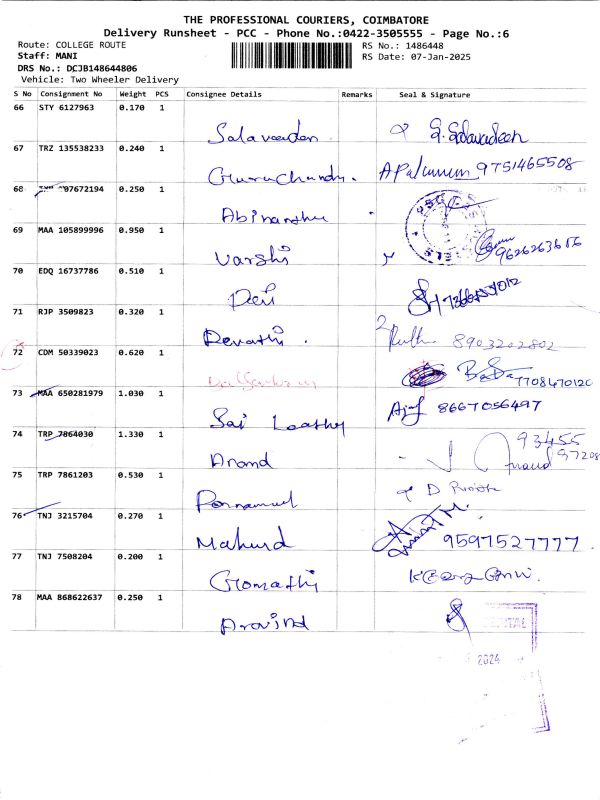 THE PROFESSIONAL COURIERS, COIMBATORE
Delivery Runsheet - PCC - Phone No.:0422-3505555 - Page No.:6
Route: COLLEGE ROUTE RS No.: 1486448
Staff: MANI RS Date: 07-Jan-2025
DRS No.: DCJB148644806
Vehicle: Two Wheeler Delivery
S No Consignment No Weight PCS Consignee Details Remarks Seal & Signature
66 STY 6127963 0.170 1
67 TRZ 135538233 0.240 1 9751465508
68 07672194 0.250 1
69 MAA 105899996 0.950 1 Varshi
70 EDQ 16737786 0.510 1 Devi
71 RJP 3509823 0.320 1 Revathi . 8903202802
72 CDM 50339023 0.620 1 7708470120
73 MAA 650281979 1.030 1 Sai 8667056497
74 TRP 7864030 1.330 1 Anand 93455
75 TRP 7861203 0.530 1
76 TNJ 3215704 0.270 1 9597527777
77 TNJ 7508204 0.200 1 Gomathi
78 MAA 868622637 0.250 1 Aravind
2024